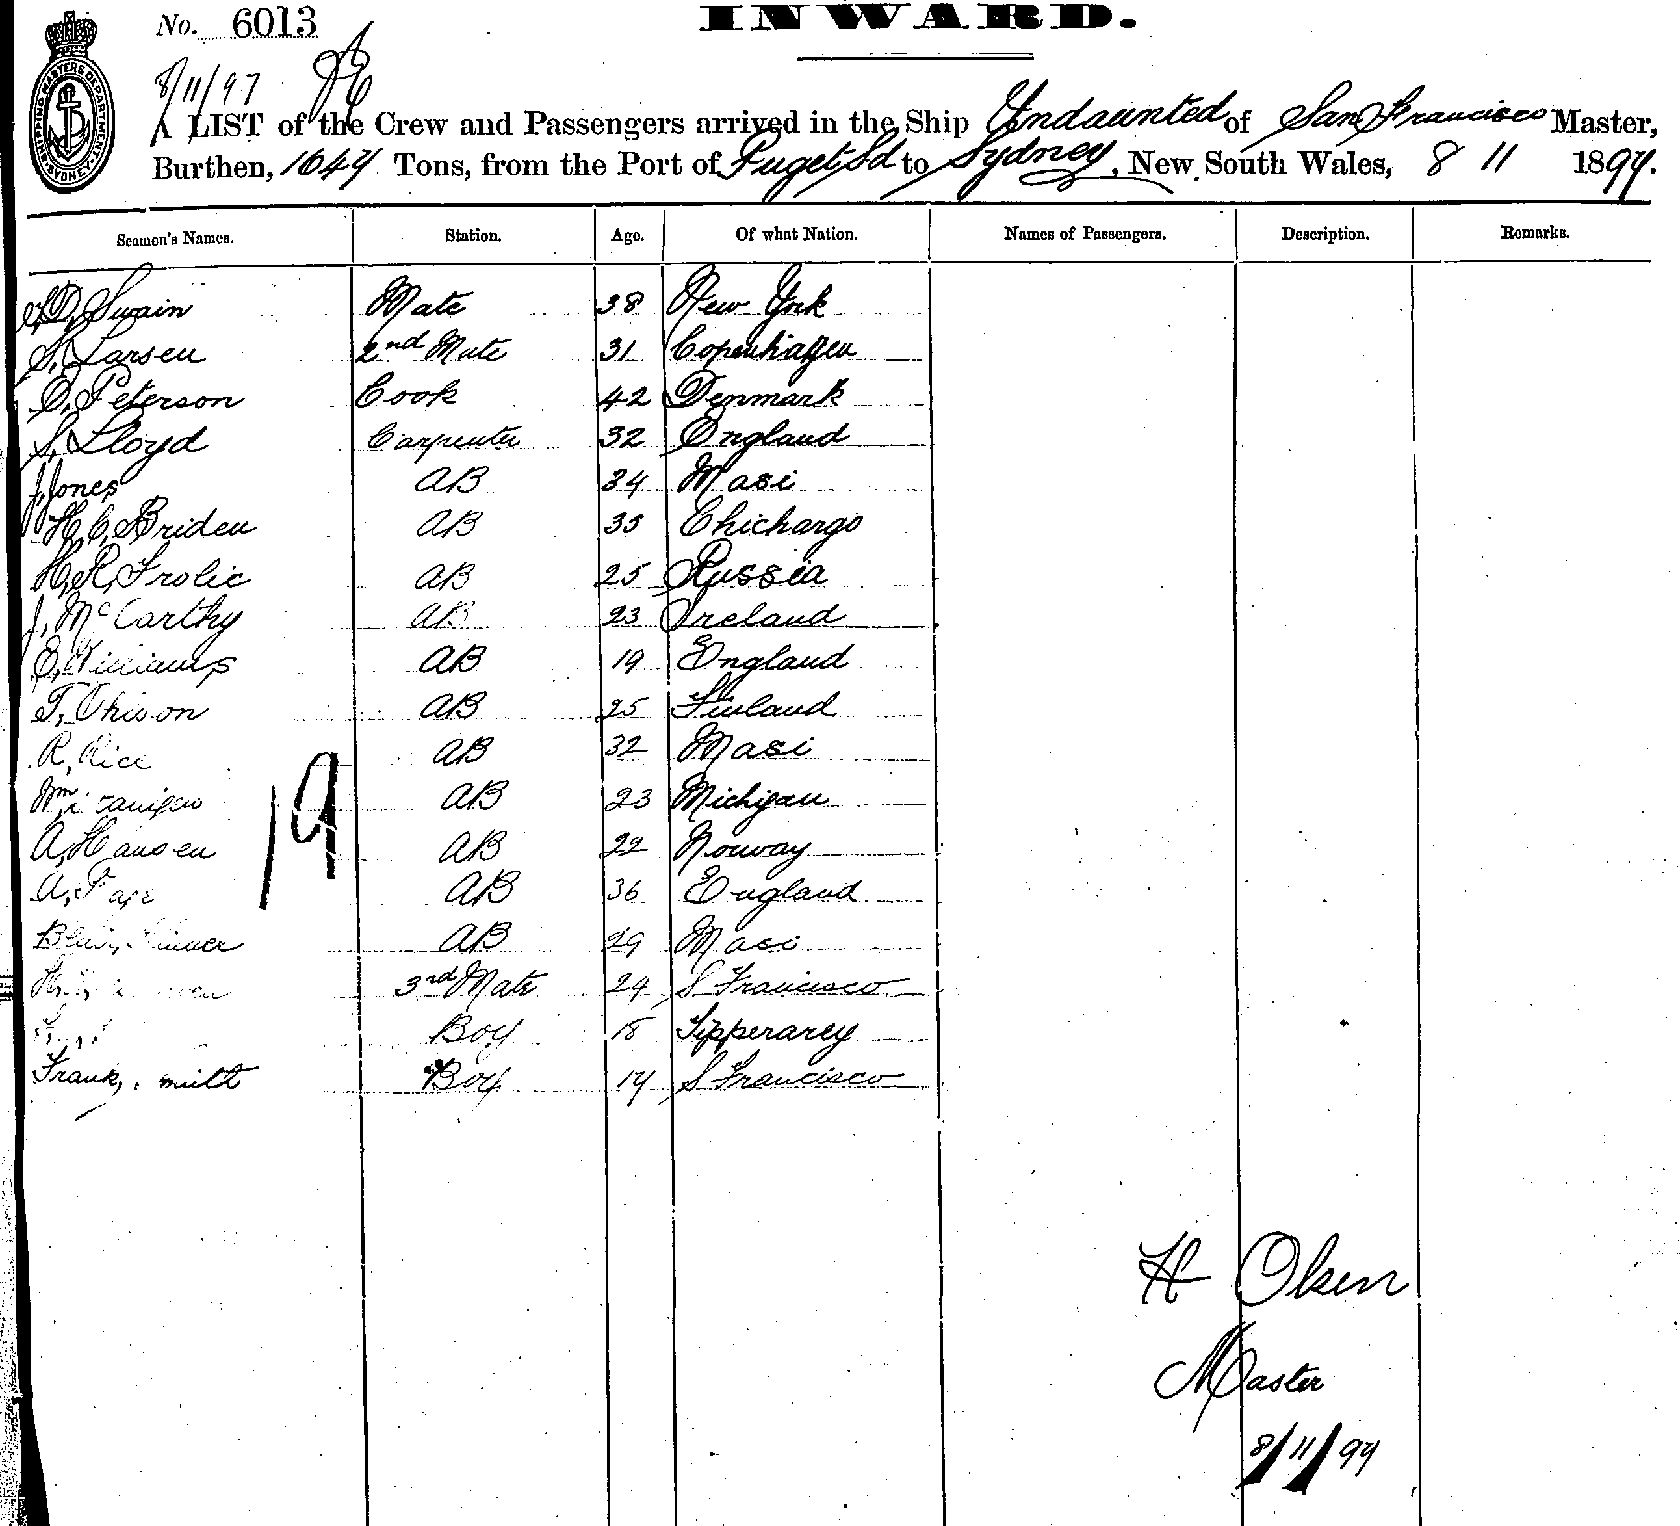 No. 6013
INWARD.
8/11/97
A LIST of the Crew and Passengers arrived in the Ship Undaunted of San Francisco Master,
Burthen, 1647 Tons, from the Port of Puget Sd to Sydney, New South Wales, 8 11 1897.
SHIPPING MASTERS DEPARTMENT SYDNEY
Seamen's Names. Station. Age. Of what Nation. Names of Passengers. Description. Remarks.
Swain Mate 38 New York
S. Larsen 2nd Mate 31 Copenhagen
Peterson Cook 42 Denmark
S. Lloyd Carpenter 32 England
J. Jones AB 34 Masi
H. C. Briden AB 35 Chichargo
H. R. Frolic AB 25 Russia
J. McCarthy AB 23 Ireland
E. Williams AB 19 England
T. Ohison AB 25 Finland
R. Rice AB 32 Masi
Wm AB 23 Michigan
A. Hansen AB 22 Norway
A. AB 36 England
AB 29 Masi
3rd Mate 24 S Francisco
Boy Tipperarey
Frank Boy 17 S Francisco
19
H Olsen
Master
8/11/97